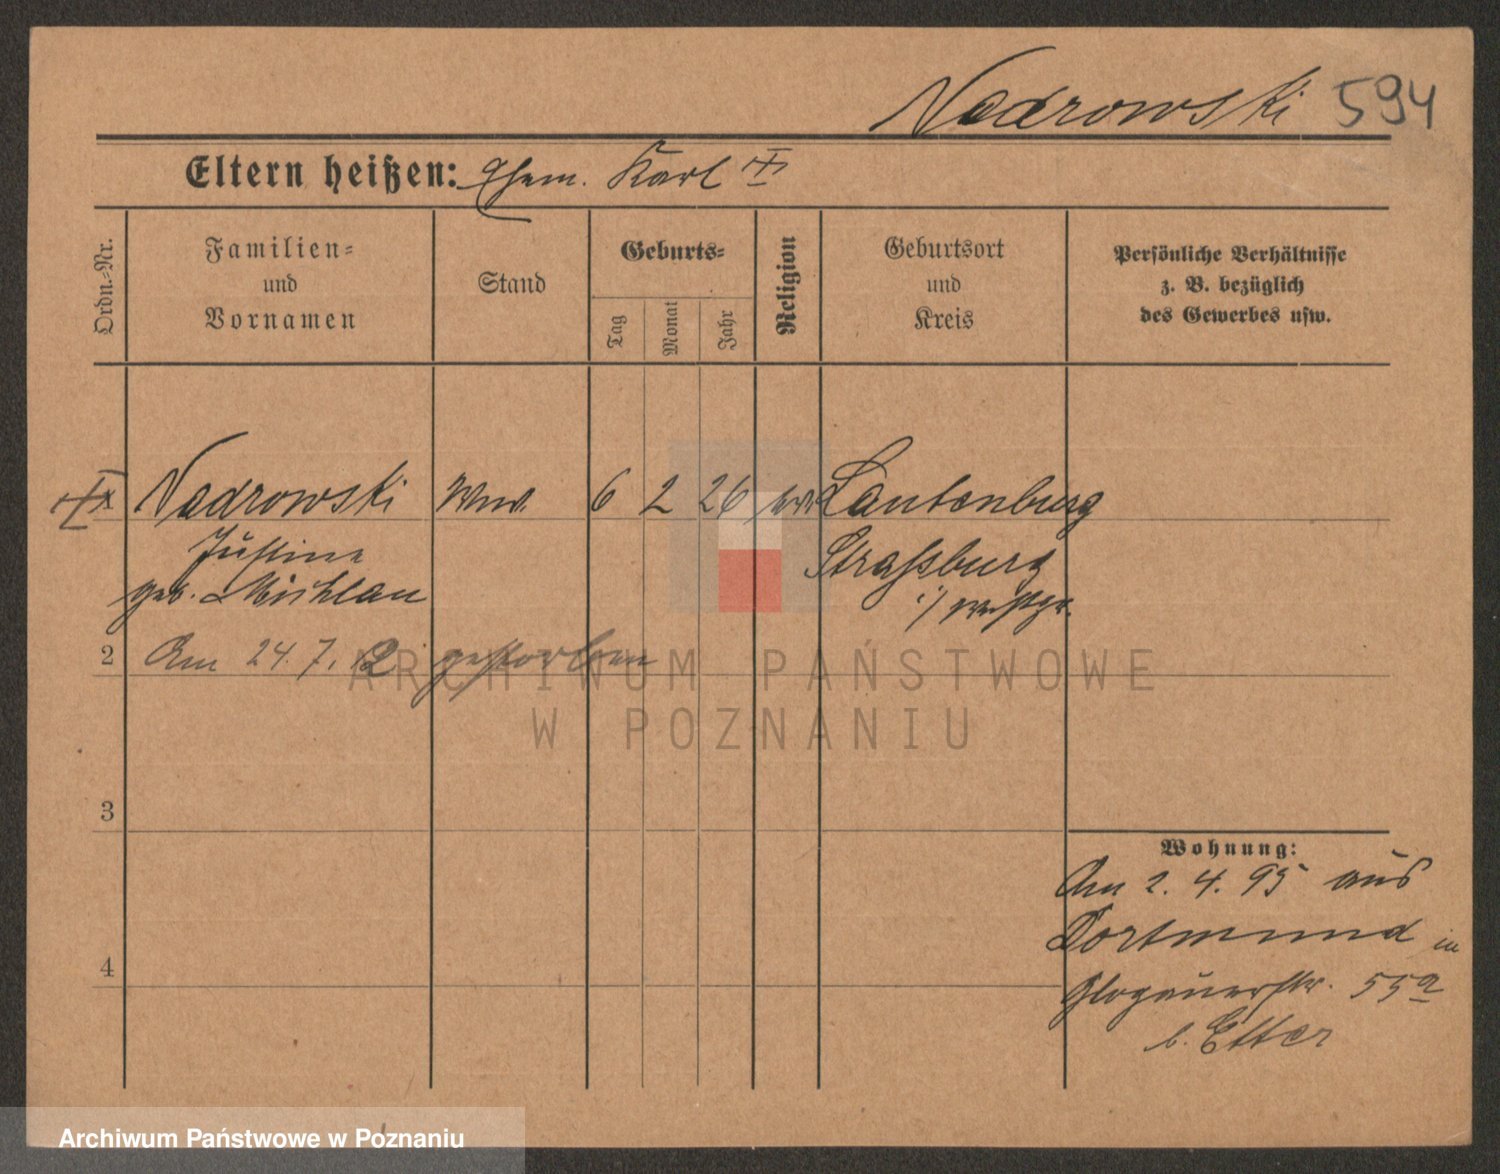 Nadrowski 594
Eltern heißen: Ehem. Karl
Ordn.-Nr.
Familien-
und
Vornamen
Stand
Geburts-
Tag
Monat
Jahr
Religion
Geburtsort
und
Kreis
Persönliche Verhältnisse
z. B. bezüglich
des Gewerbes usw.
Nadrowski Wwe. 6 2 26 Lautenburg
Justine Straßburg
geb. i/ Westpr.
2 Am 24. 7. 12 gestorben
3
4
Wohnung:
Am 2. 4. 95 aus
Dortmund in
Glogauerstr. 55a
b. Etter
ARCHIWUM PAŃSTWOWE
W POZNANIU
Archiwum Państwowe w Poznaniu